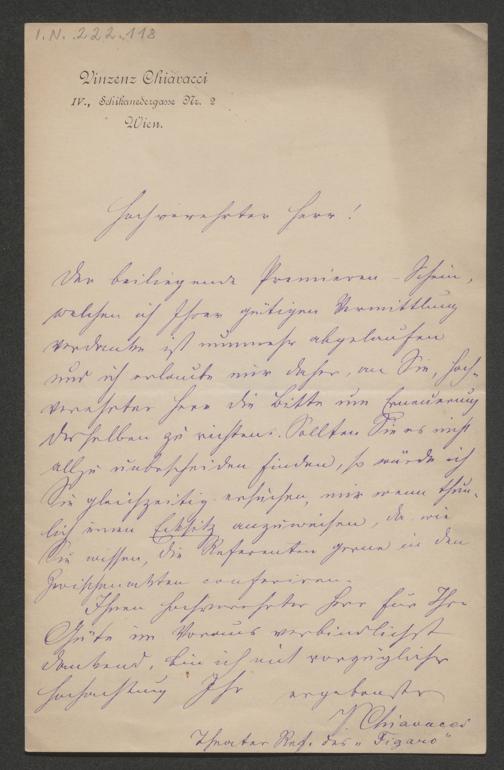 I.N. 222.118
Vinzenz Chiavacci
IV., Schikanedergasse Nr. 2
Wien.
Hochverehrter Herr!
Der beiliegende Premièren-Schein,
welchen ich Ihrer gütigen Vermittlung
verdanke ist nunmehr abgelaufen
und ich erlaube mir daher, an Sie, hoch-
verehrter Herr die Bitte um Erneuerung
desselben zu richten. Sollten Sie es nicht
allzu unbescheiden finden, so würde ich
Sie gleichzeitig ersuchen, mir wenn thun-
lich einen Ecksitz anzuweisen, da wie
Sie wissen, die Referenten gerne in den
Zwischenakten conferiren.
Ihnen hochverehrter Herr für Ihre
Güte im Voraus verbindlichst
dankend, bin ich mit vorzüglicher
Hochachtung Ihr ergebenster
V. Chiavacci
Theater Ref. des „Figaro“